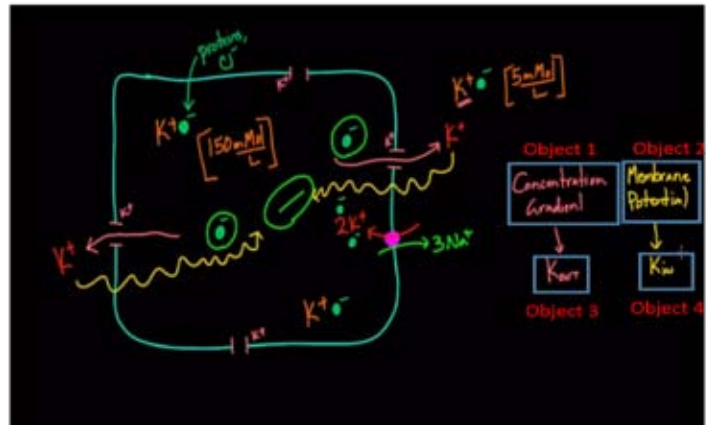 proteins,
Cl⁻
K⁺
K⁺ ⁻
[5 mMol/L]
K⁺ ⁻
[150 mMol/L]
⁻
K⁺
K⁺
Object 1
Object 2
Concentration
Gradient
Membrane
Potential
K⁺
⁻
−
⁻
2K⁺
⁻
3Na⁺
K⁺
KOUT
KIN
Object 3
Object 4
K⁺ ⁻
K⁺